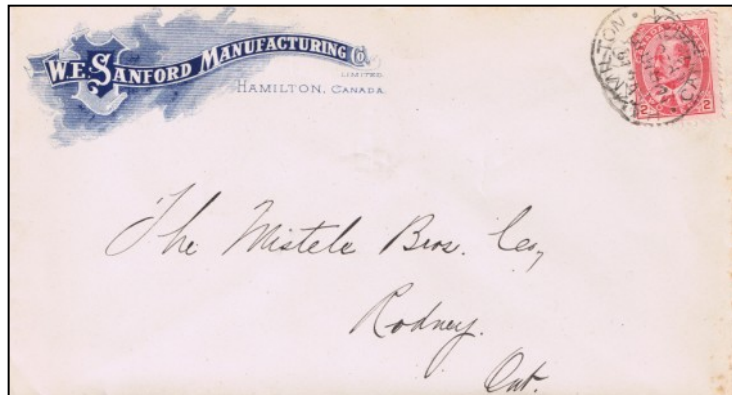 W.E. SANFORD MANUFACTURING Co.
LIMITED.
HAMILTON, CANADA.
HAMILTON
CANADA
2 2
The Mistele Bros. Co,
Rodney.
Ont.